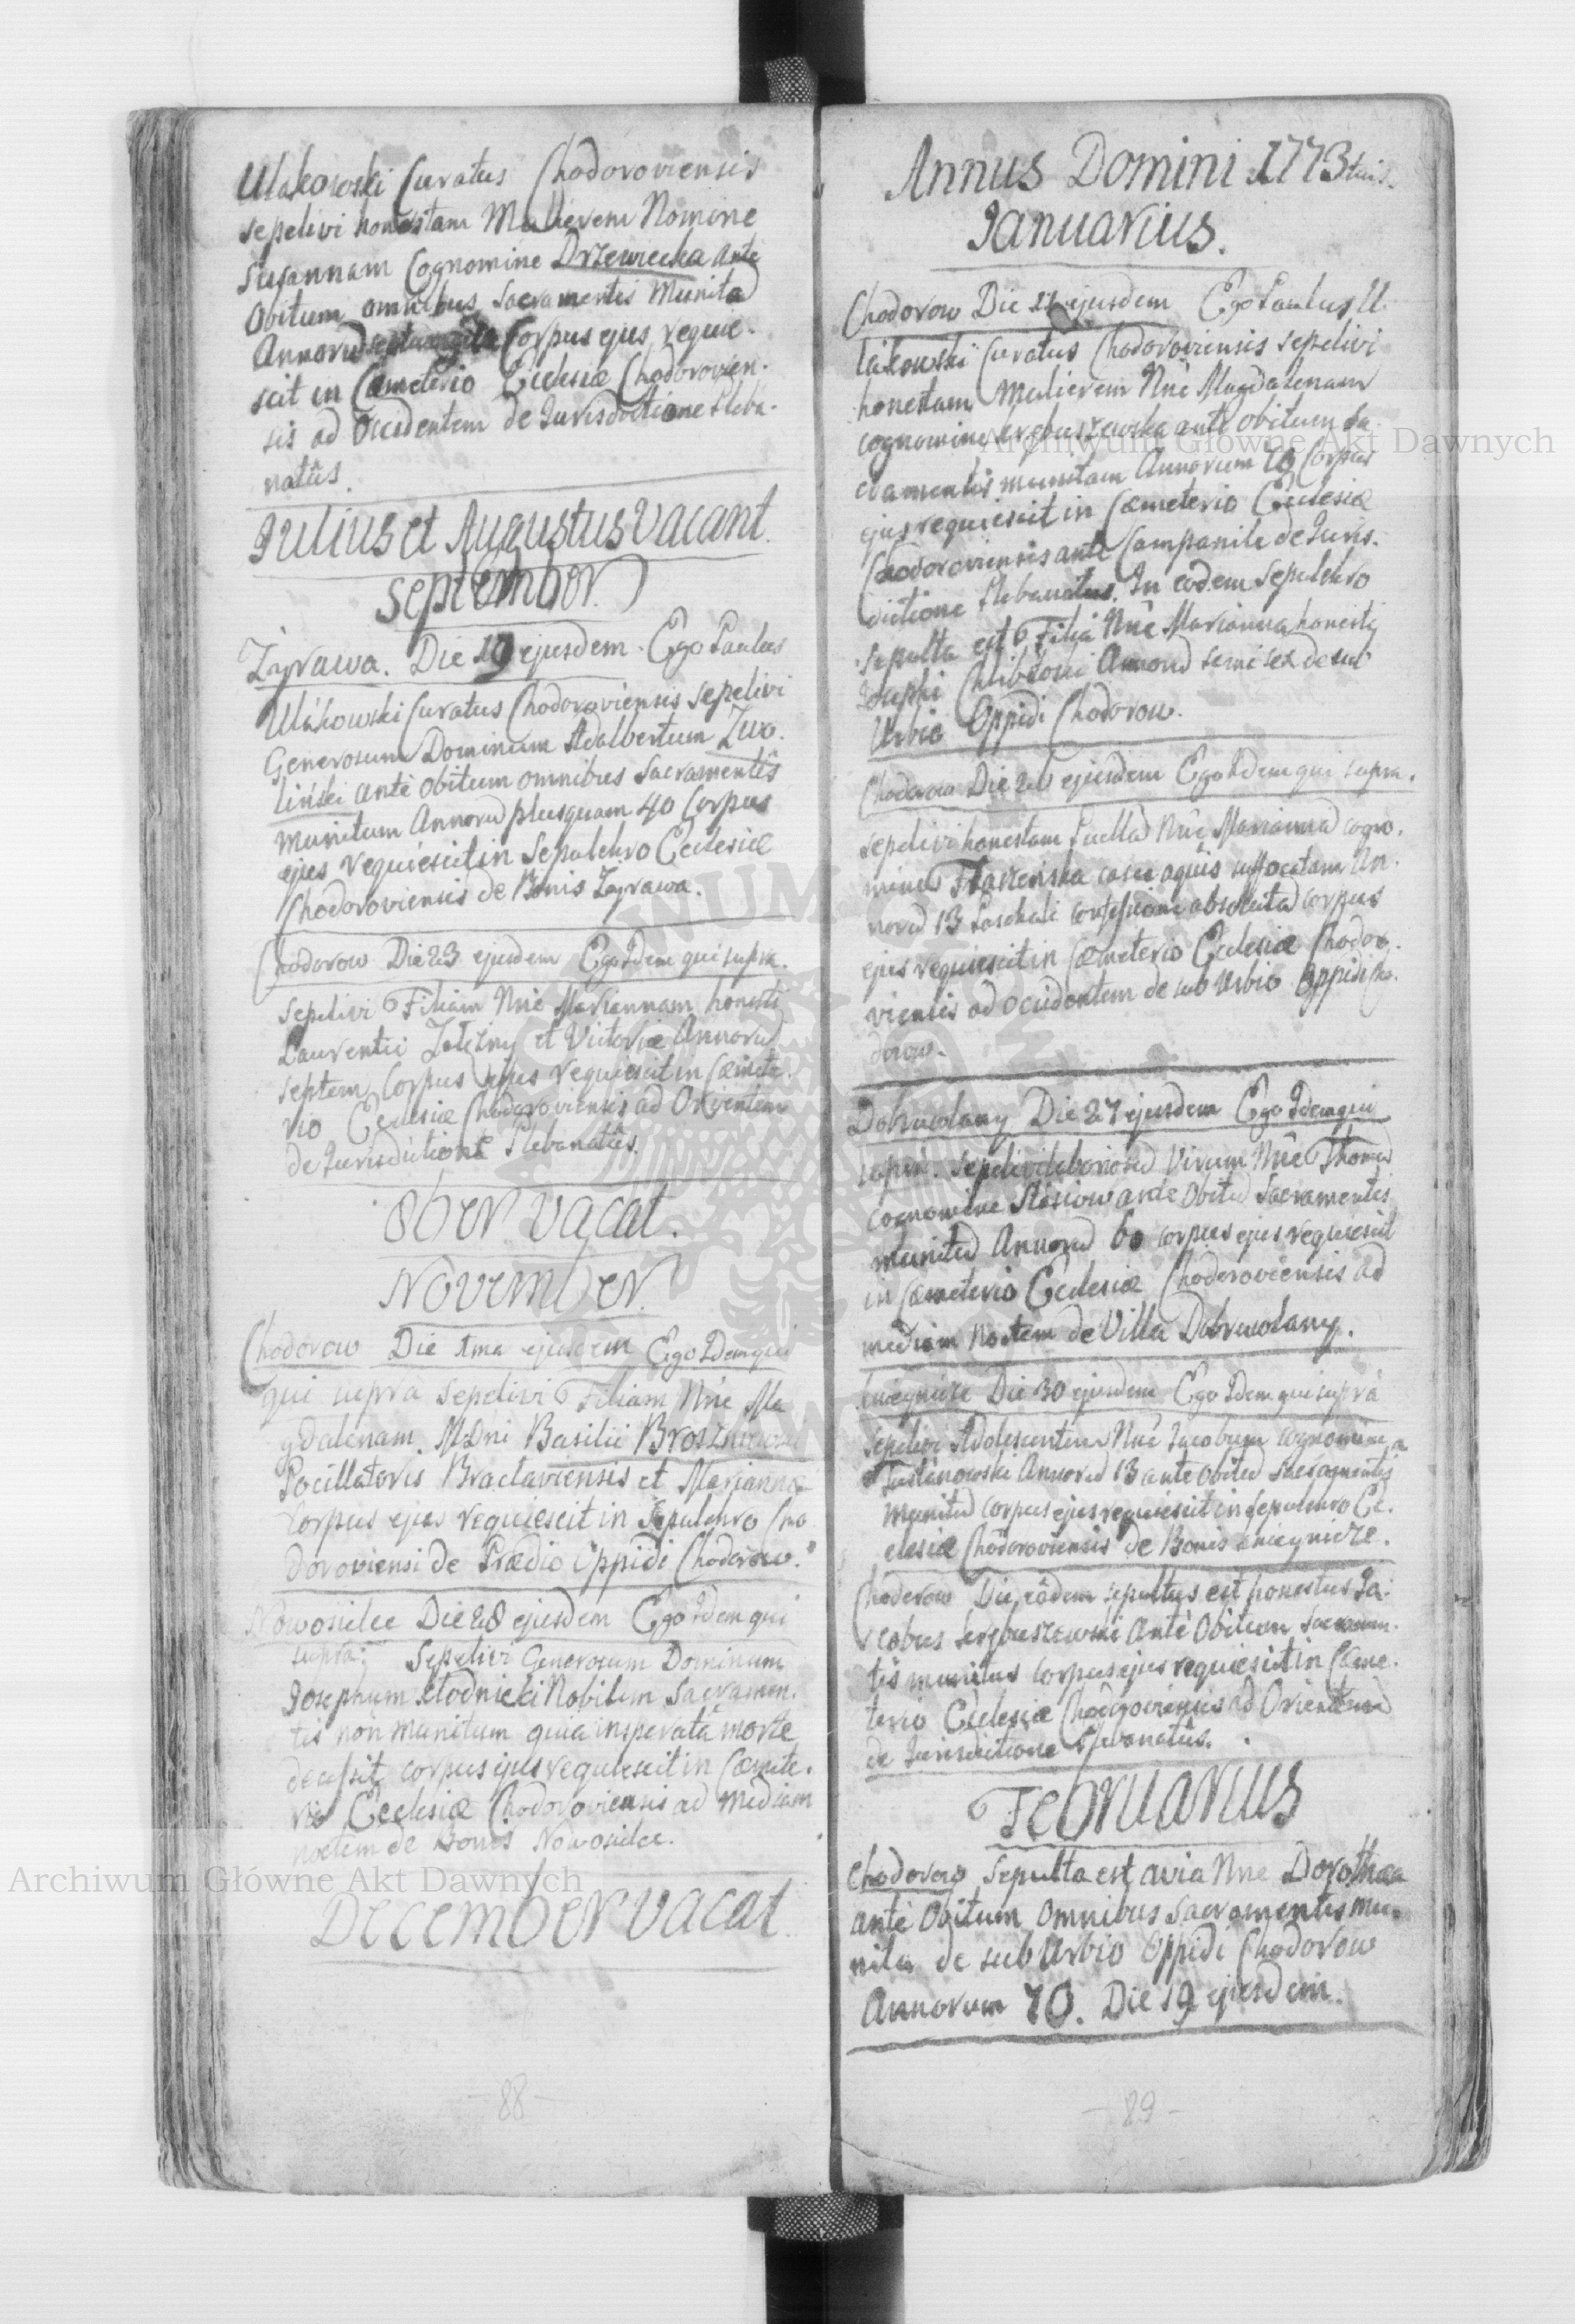 Ulakowski Curatus Chodoroviensis
sepelivi honestam Mulierem Nomine
Susannam Cognomine Drzewiecka ante
Obitum omnibus Sacramentis Munitã
Annorũ Corpus ejus requie-
scit in Cæmeterio Ecclesiæ Chodorovien-
sis ad Occidentem de Jurisdictione Pleba-
natûs.
Julius et Augustus Vacant.
September.
Zaprawa. Die 19 ejusdem. Ego Paulus
Ulakowski Curatus Chodoroviensis sepelivi
Generosum Dominum Adalbertum Zwo-
liński ante obitum omnibus Sacramentis
munitum Annorũ plusquam 40 Corpus
ejus requiescit in Sepulchro Ecclesiæ
Chodoroviensis de Bonis Zaprawa.
Chodorow Die 23 ejusdem Ego Idem qui supra.
Sepelivi Filiam Nn̂e Mariannam honesti
Laurentii et Victoriæ Annorũ
septem Corpus ejus requiescit in Cæmete-
rio Ecclesiæ Chodoroviensis ad Orientem
de Jurisdictione Plebanatûs.
8ber vacat.
November.
Chodorow Die 1ma ejusdem Ego Idem qui
qui supra sepelivi Filiam Nn̂e Ma
gdalenam MDni Basilii
Pocillatoris Braclaviensis et Mariannæ
Corpus ejus requiescit in Sepulchro Cho
doroviensi de Prædio Oppidi Chodorow.
Nowosielce Die 28 ejusdem Ego Idem qui
supra; Sepelivi Generosum Dominum
Josephum Kłodnicki Nobilem Sacramen-
tis non munitum quia insperatâ morte
decessit corpus ejus requiescit in Cæmete-
rio Ecclesiæ Chodoroviensis ad mediam
noctem de Bonis Nowosielce.
December vacat.
- 88 -
Annus Domini 1773tius.
Januarius.
Chodorow Die 21 ejusdem Ego Paulus U-
lakowski Curatus Chodoroviensis sepelivi
honestam Mulierem Nn̂e Magdalenam
cognomine ante obitum Sa-
cramentis munitam Annorum Corpus
ejus requiescit in Cæmeterio Ecclesiæ
Chodoroviensis ante Campanile de Juris-
dictione Plebanatus. In eodem Sepulchro
sepulta est Filia Nn̂e Marianna honesti
Josephi Annorũ semisex de sub
Urbio Oppidi Chodorow.
Chodorow Die ejusdem Ego Idem qui supra.
sepelivi honestam Puellã Nn̂e Mariannã cogno-
mine casu aquis suffocatam An-
norũ 13 Paschali confessione absolutã Corpus
ejus requiescit in Cæmeterio Ecclesiæ Chodoro-
viensis ad occidentem de sub Urbio Oppidi Cho-
dorow.
Dobrowlany Die 27 ejusdem Ego Idem qui
supra. Sepelivi laboriosũ Virum Nn̂e Thomã
cognomine Stasiow ante Obitũ Sacramentis
munitũ Annorũ 60 corpus ejus requiescit
in Cæmeterio Ecclesiæ Chodoroviensis ad
mediam Noctem de Villa Dobrowlany.
Die 30 ejusdem Ego Idem qui suprà
Sepelivi Adolescentem Nn̂e Jacobum cognomine
Annorũ 13 ante obitũ Sacramentis
munitũ Corpus ejus requiescit in Sepulchro Ec-
clesiæ Chodoroviensis de Bonis
Chodorow Die eâdem sepultus est honestus Ja-
cobus Antè Obitum Sacramen-
tis munitus Corpus ejus requiescit in Cæme-
terio Ecclesiæ Chodoroviensis ad Orientem
de Jurisdictione Plebanatûs.
Februarius
Chodorow Sepulta est avia Nne Dorothæa
antè Obitum Omnibus Sacramentis mu-
nita de sub Urbio Oppidi Chodorow
Annorum 70. Die 19 ejusdem.
- 89 -
Archiwum Główne Akt Dawnych
Archiwum Główne Akt Dawnych